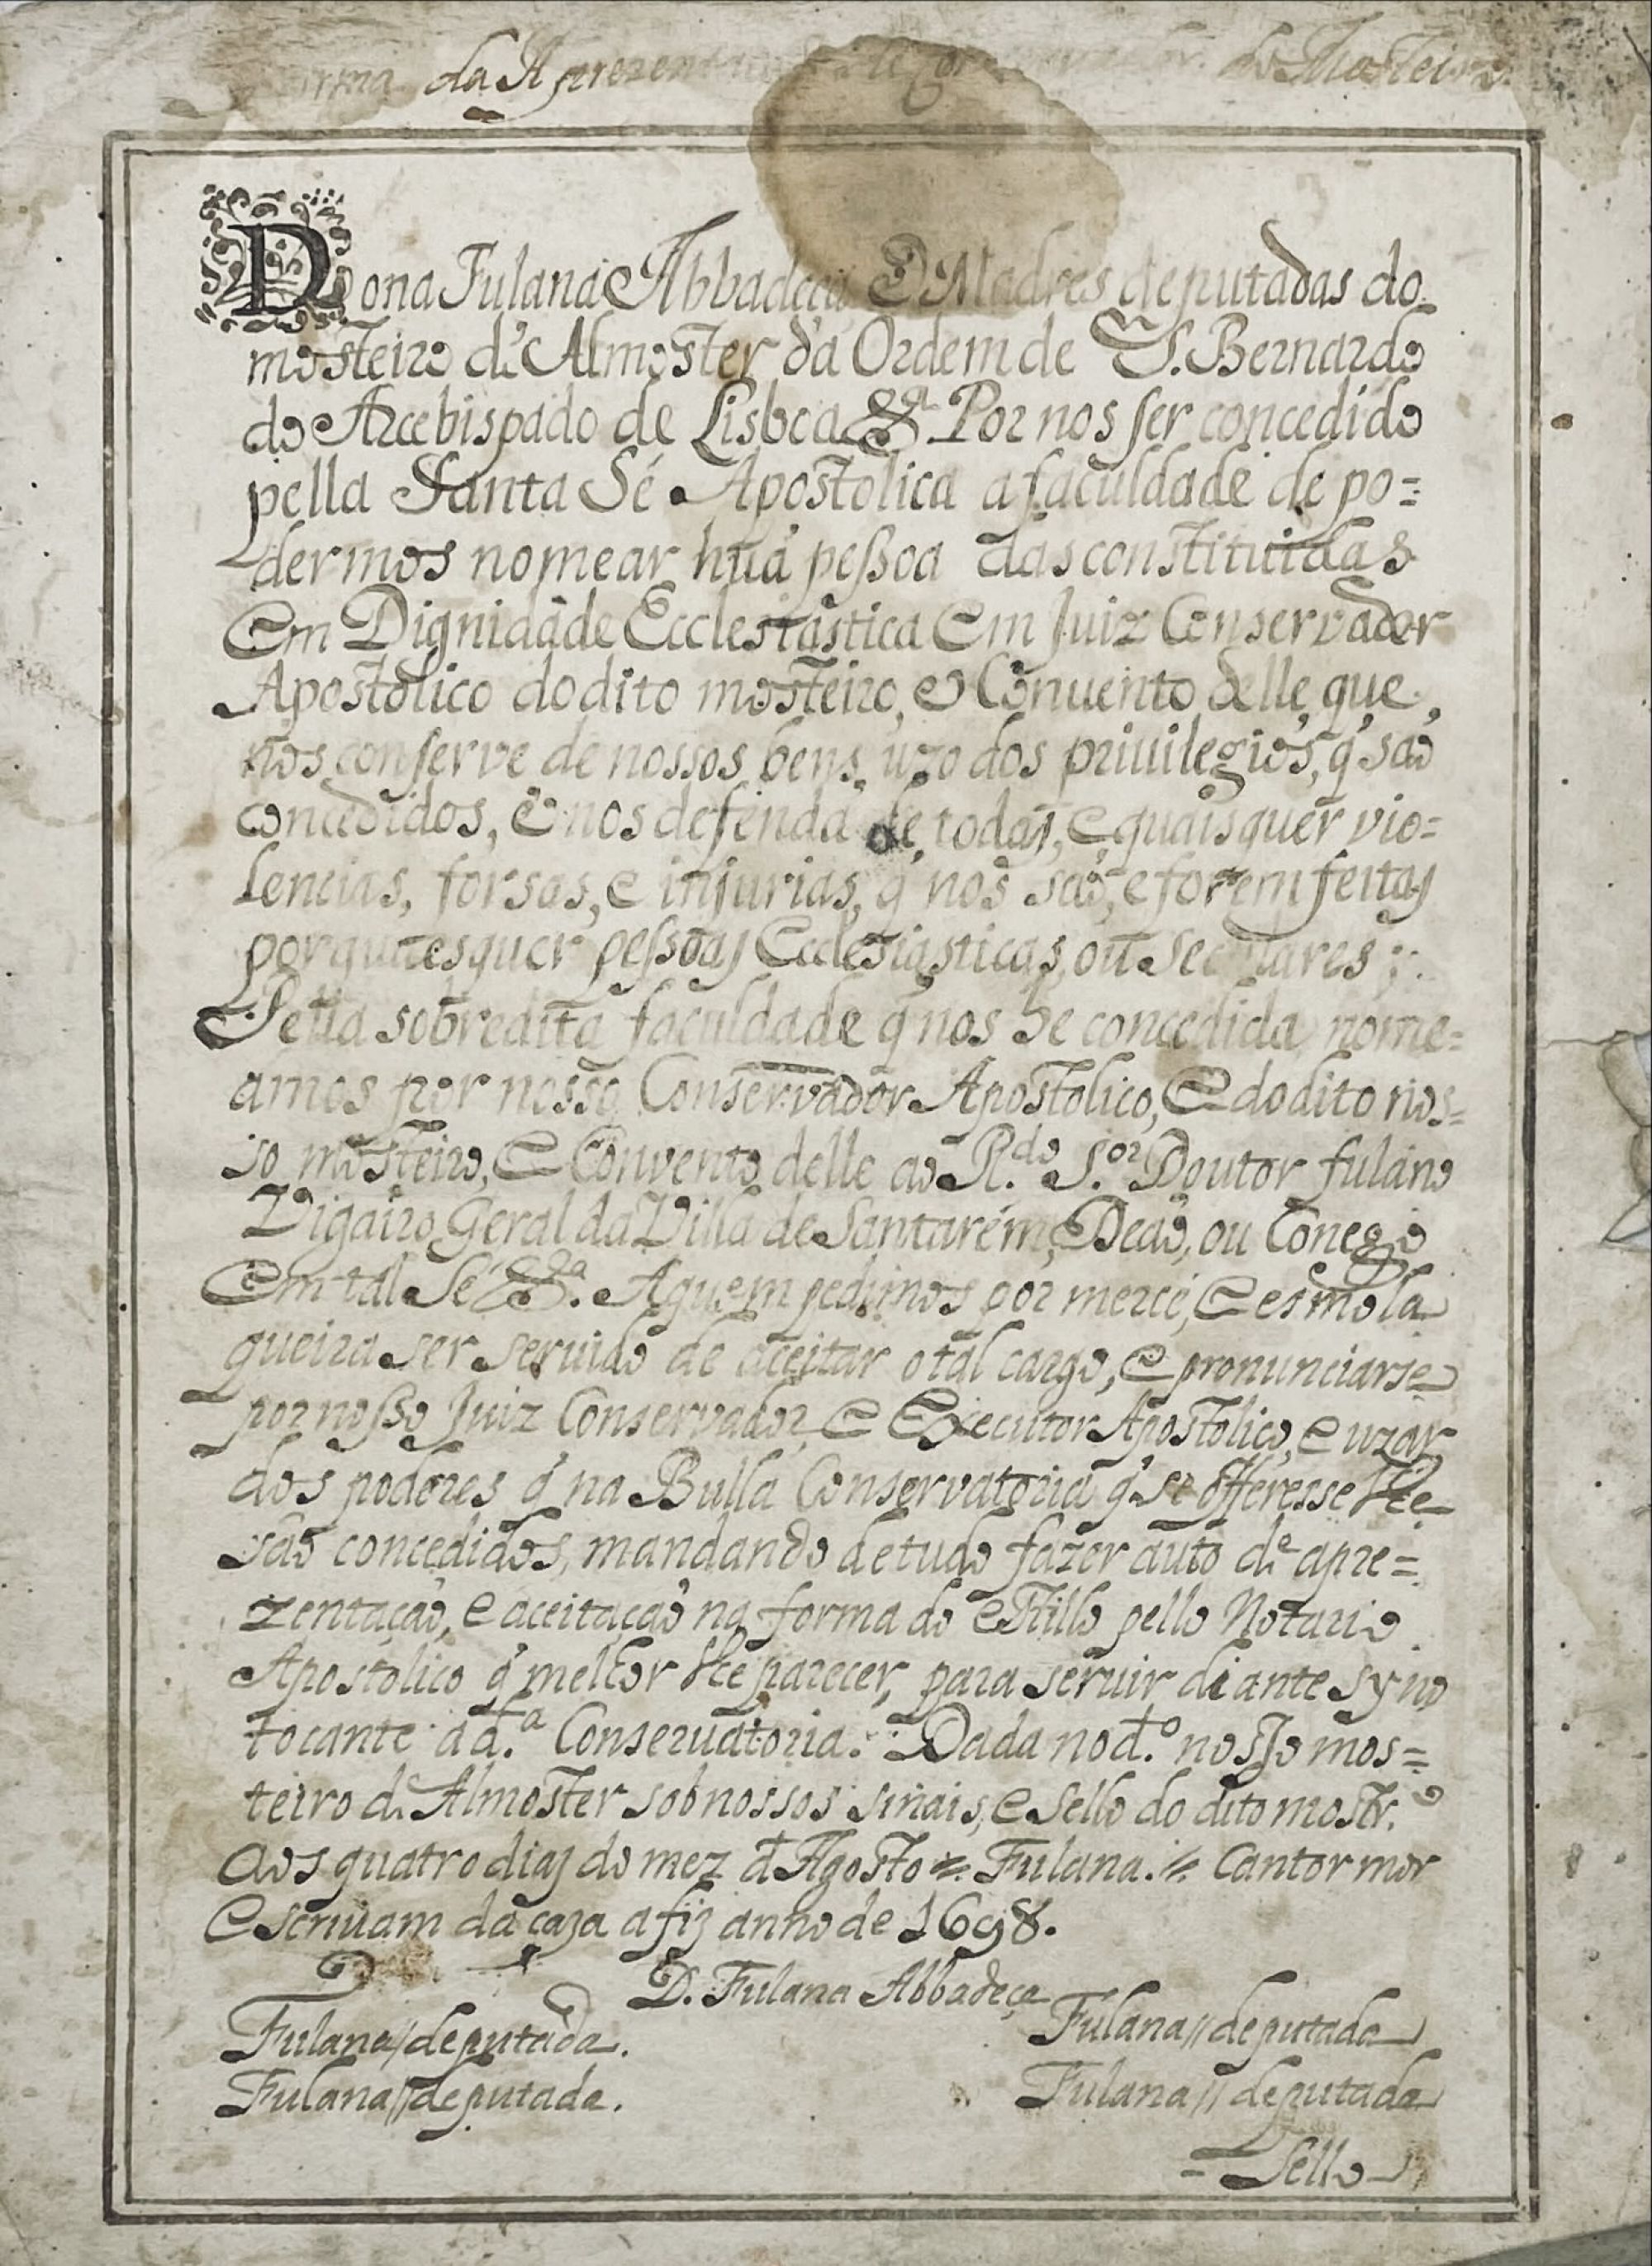 da Aprezen do Mosteiro
Dona Fulana Abbadeça E Madres deputadas do
mosteiro de Almoster da Ordem de S. Bernardo
do Arcebispado de Lisboa &a. Por nos ser concedido
pella Santa Sé Apostolica a faculdade de po=
dermos nomear huã pessoa das constituidas
Em Dignidade Ecclesiastica Em Juiz Conservador
Apostolico do dito mosteiro, e Convento delle, que,
nos conserve de nossos bens, uzo dos privilegios, q̃ saõ
concedidos, E nos defenda de todas, e quaisquer vio=
lencias, forsas, e injurias, q̃ nos saõ, e forem feitas
por quaesquer pessoas Ecclesiasticas, ou Seculares;
Pella sobredita faculdade q̃ nos he concedida nome=
amos por nosso Conservador Apostolico, E do dito nos=
so mosteiro, E Convento delle ao R.do S.or Doutor fulano
Vigairo Geral da Villa de Santarém, Deaõ, ou Conego
Em tal Sé &a. A quem pedimos por mercé, E esmola
queira ser servido de aceitar o tal cargo, E pronunciarse
por nosso Juiz Conservador, E Executor Apostolico, e uzar
dos poderes q̃ na Bulla Conservatoria q̃ se offeresse lhe
saõ concedidos, mandando de tudo fazer auto de apre=
zentaçaõ, e aceitaçaõ na forma do estillo pello Notario
Apostolico q̃ melhor lhe parecer, para servir diante sy no
tocante a d.a Conservatoria. Dada no d.o nosso mos=
teiro de Almoster sob nossos sinais, e Sello do dito mostr.o
Aos quatro dias do mez d'Agosto = Fulana. = Cantor mor
Escrivam da caza a fiz anno de 1698.
D. Fulana Abbadeça
Fulana // deputada. Fulana // deputada
Fulana // deputada. Fulana // deputada
= Sello